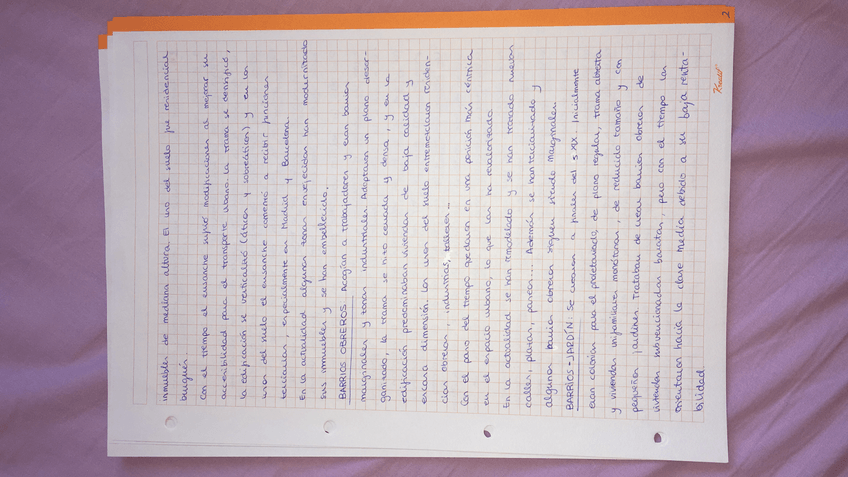 inmuebles de mediana altura. El uso del suelo fue residencial
burgués.
Con el tiempo el ensanche sufrió modificaciones al mejorar su
accesibilidad para el transporte urbano la trama se densificó,
la edificación se verticalizó (áticos y sobreáticos) y en los
usos del suelo el ensanche comenzó a recibir funciones
terciarias, especialmente en Madrid y Barcelona.
En la actualidad algunas zonas envejecidas han modernizado
sus inmuebles y se han embellecido.
BARRIOS OBREROS Acogían a trabajadores y eran barrios
marginales y zonas industriales. Adoptaron un plano desor-
ganizado, la trama se hizo cerrada y densa, y en la
edificación predominaban viviendas de baja calidad y
escasa dimensión. Los usos del suelo entremezclaron residen-
cias obreras, industrias, talleres...
Con el paso del tiempo quedaron en una posición más céntrica
en el espacio urbano, lo que las ha revalorizado.
En la actualidad se han remodelado y se han trazado nuevas
calles, plazas, paseos... Además se han reclasificado y
algunos barrios obreros siguen siendo marginales.
BARRIOS-JARDÍN: Se crearon a finales del s XIX. Inicialmente
eran colonias para el proletariado, de plano regular, trama abierta
y viviendas unifamiliares monótonas, de reducido tamaño y con
pequeños jardines. Trataban de crear barrios obreros de
viviendas subvencionadas baratas, pero con el tiempo las
orientaron hacia la clase media debido a su baja renta-
bilidad
2